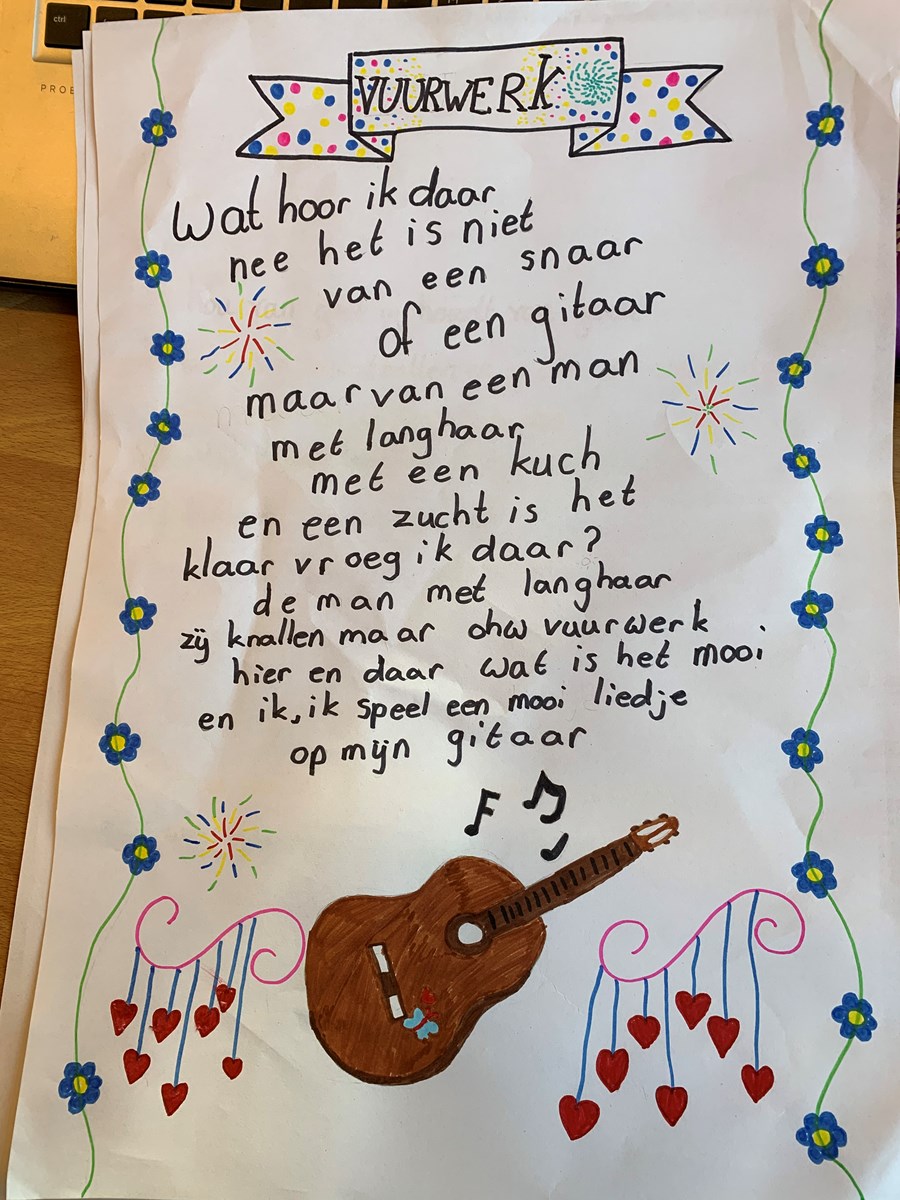 ctrl
PROB
VUURWERK
Wat hoor ik daar
nee het is niet
van een snaar
of een gitaar
maar van een man
met langhaar
met een kuch
en een zucht is het
klaar vroeg ik daar?
de man met langhaar
zij knallen maar ohw vuurwerk
hier en daar wat is het mooi
en ik, ik speel een mooi liedje
op mijn gitaar